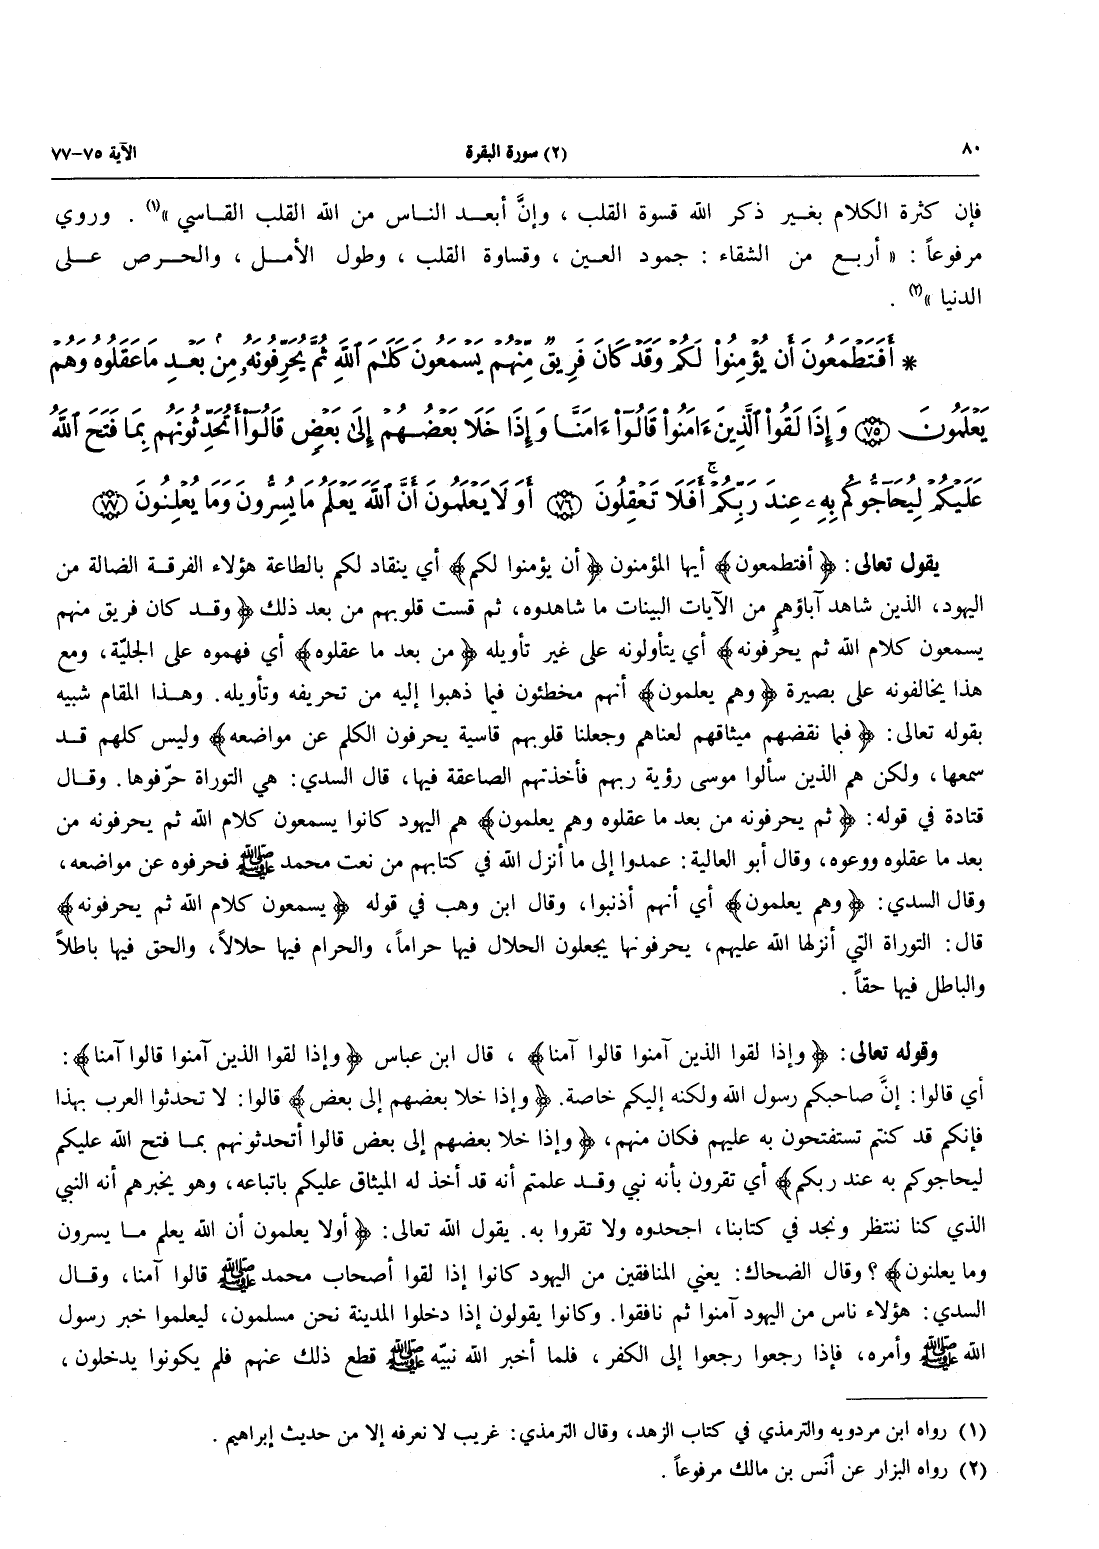 ٨٠ (٢) سورة البقرة الآية ٧٥–٧٧
فإن كثرة الكلام بغير ذكر الله قسوة القلب ، وإنَّ أبعد الناس من الله القلب القاسي »(١) . وروي
مرفوعاً : « أربع من الشقاء : جمود العين ، وقساوة القلب ، وطول الأمل ، والحرص على
الدنيا »(٢) .
* أَفَتَطْمَعُونَ أَن يُؤْمِنُوا۟ لَكُمْ وَقَدْ كَانَ فَرِيقٌ مِّنْهُمْ يَسْمَعُونَ كَلَٰمَ ٱللَّهِ ثُمَّ يُحَرِّفُونَهُۥ مِنۢ بَعْدِ مَا عَقَلُوهُ وَهُمْ
يَعْلَمُونَ ﴿٧٥﴾ وَإِذَا لَقُوا۟ ٱلَّذِينَ ءَامَنُوا۟ قَالُوٓا۟ ءَامَنَّا وَإِذَا خَلَا بَعْضُهُمْ إِلَىٰ بَعْضٍ قَالُوٓا۟ أَتُحَدِّثُونَهُم بِمَا فَتَحَ ٱللَّهُ
عَلَيْكُمْ لِيُحَآجُّوكُم بِهِۦ عِندَ رَبِّكُمْ ۚ أَفَلَا تَعْقِلُونَ ﴿٧٦﴾ أَوَلَا يَعْلَمُونَ أَنَّ ٱللَّهَ يَعْلَمُ مَا يُسِرُّونَ وَمَا يُعْلِنُونَ ﴿٧٧﴾
يقول تعالى: ﴿أفتطمعون﴾ أيها المؤمنون ﴿أن يؤمنوا لكم﴾ أي ينقاد لكم بالطاعة هؤلاء الفرقة الضالة من
اليهود، الذين شاهد آباؤهم من الآيات البينات ما شاهدوه، ثم قست قلوبهم من بعد ذلك ﴿وقد كان فريق منهم
يسمعون كلام الله ثم يحرفونه﴾ أي يتأولونه على غير تأويله ﴿من بعد ما عقلوه﴾ أي فهموه على الجليّة، ومع
هذا يخالفونه على بصيرة ﴿وهم يعلمون﴾ أنهم مخطئون فيما ذهبوا إليه من تحريفه وتأويله. وهذا المقام شبيه
بقوله تعالى: ﴿فبما نقضهم ميثاقهم لعناهم وجعلنا قلوبهم قاسية يحرفون الكلم عن مواضعه﴾ وليس كلهم قد
سمعها، ولكن هم الذين سألوا موسى رؤية ربهم فأخذتهم الصاعقة فيها، قال السدي: هي التوراة حرّفوها. وقال
قتادة في قوله: ﴿ثم يحرفونه من بعد ما عقلوه وهم يعلمون﴾ هم اليهود كانوا يسمعون كلام الله ثم يحرفونه من
بعد ما عقلوه ووعوه، وقال أبو العالية: عمدوا إلى ما أنزل الله في كتابهم من نعت محمد ﷺ فحرفوه عن مواضعه،
وقال السدي: ﴿وهم يعلمون﴾ أي أنهم أذنبوا، وقال ابن وهب في قوله ﴿يسمعون كلام الله ثم يحرفونه﴾
قال: التوراة التي أنزلها الله عليهم، يحرفونها يجعلون الحلال فيها حراماً، والحرام فيها حلالاً، والحق فيها باطلاً
والباطل فيها حقاً .
وقوله تعالى: ﴿وإذا لقوا الذين آمنوا قالوا آمنا﴾ ، قال ابن عباس ﴿وإذا لقوا الذين آمنوا قالوا آمنا﴾:
أي قالوا: إنَّ صاحبكم رسول الله ولكنه إليكم خاصة. ﴿وإذا خلا بعضهم إلى بعض﴾ قالوا: لا تحدثوا العرب بهذا
فإنكم قد كنتم تستفتحون به عليهم فكان منهم، ﴿وإذا خلا بعضهم إلى بعض قالوا أتحدثونهم بما فتح الله عليكم
ليحاجوكم به عند ربكم﴾ أي تقرون بأنه نبي وقد علمتم أنه قد أخذ له الميثاق عليكم باتباعه، وهو يخبرهم أنه النبي
الذي كنا ننتظر ونجد في كتابنا، اجحدوه ولا تقروا به. يقول الله تعالى: ﴿أولا يعلمون أن الله يعلم ما يسرون
وما يعلنون﴾ ؟ وقال الضحاك: يعني المنافقين من اليهود كانوا إذا لقوا أصحاب محمد ﷺ قالوا آمنا، وقال
السدي: هؤلاء ناس من اليهود آمنوا ثم نافقوا. وكانوا يقولون إذا دخلوا المدينة نحن مسلمون، ليعلموا خبر رسول
الله ﷺ وأمره، فإذا رجعوا رجعوا إلى الكفر، فلما أخبر الله نبيّه ﷺ قطع ذلك عنهم فلم يكونوا يدخلون،
(١) رواه ابن مردويه والترمذي في كتاب الزهد، وقال الترمذي: غريب لا نعرفه إلا من حديث إبراهيم .
(٢) رواه البزار عن أنَس بن مالك مرفوعاً .